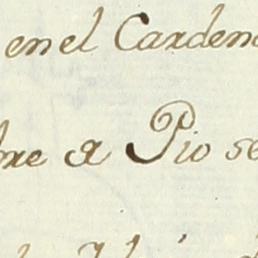 en el Cardena
bre a Pio se